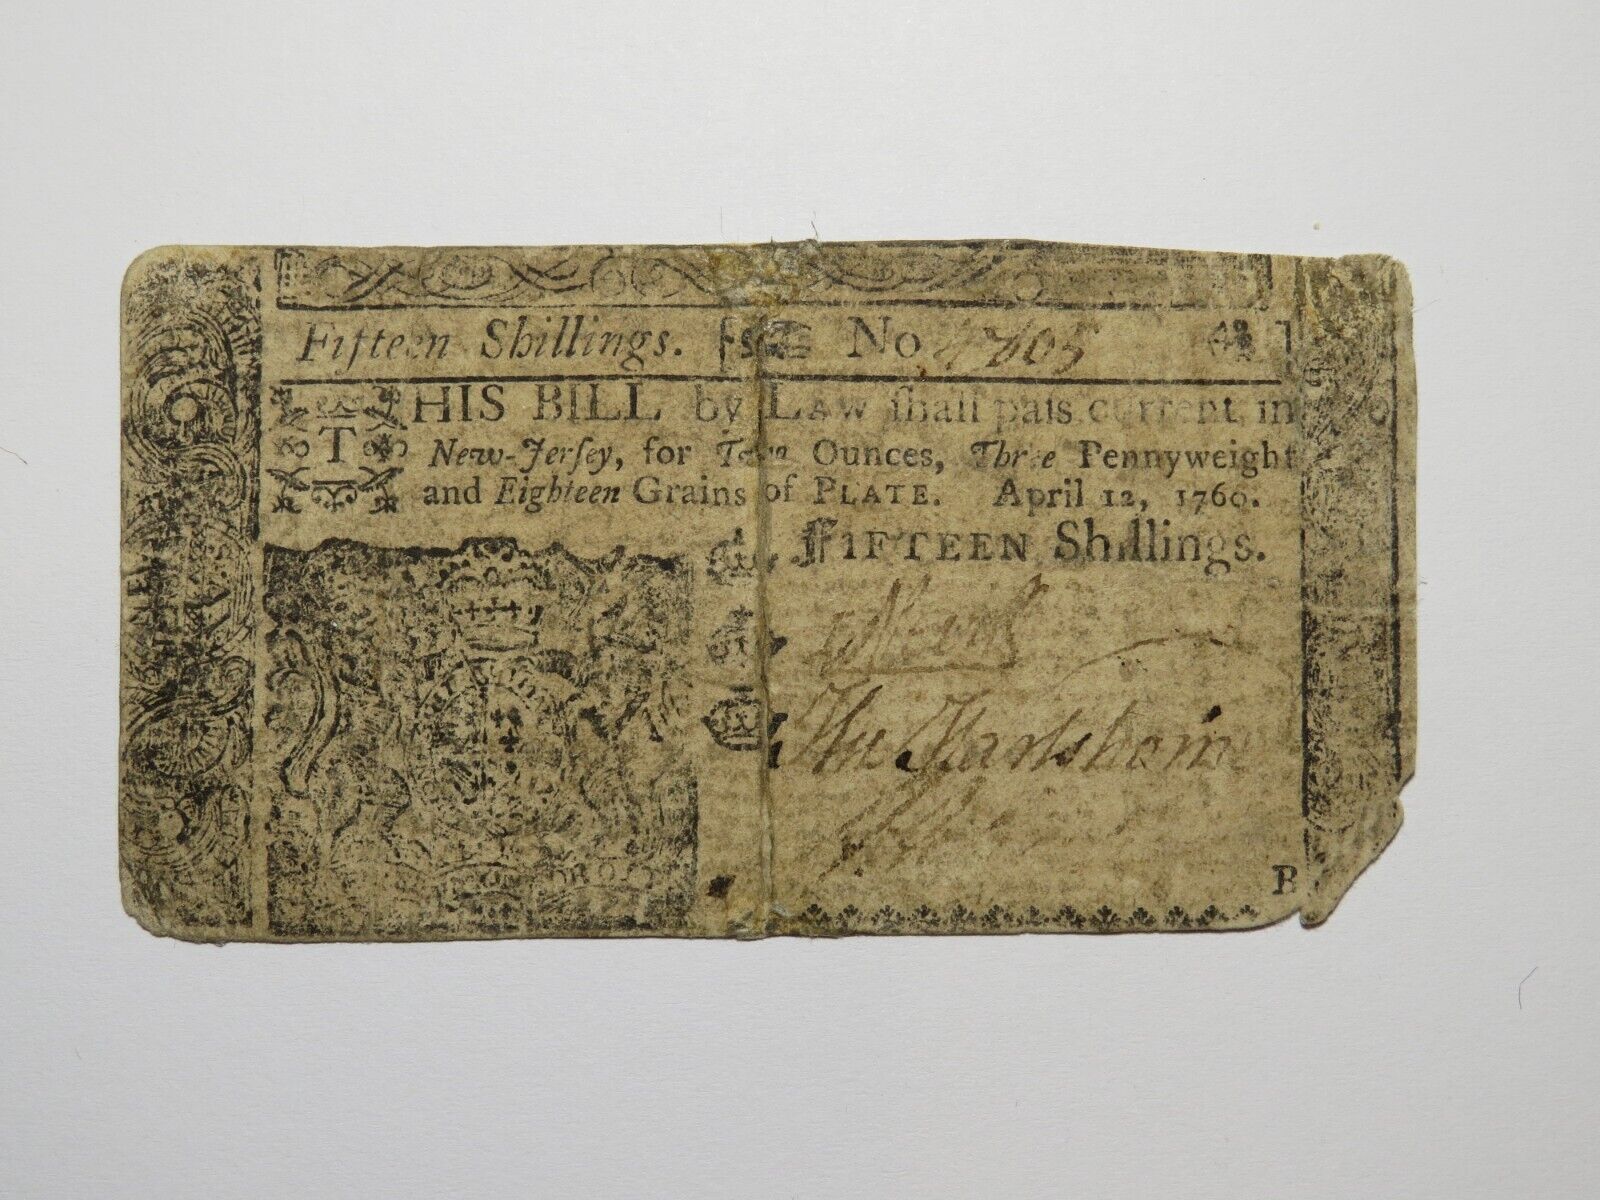 Fifteen Shillings. No 4705
THIS BILL by LAW ſhall paſs current in
New-Jerſey, for Two Ounces, Three Pennyweight
and Eighteen Grains of PLATE. April 12, 1760.
FIFTEEN Shillings.
Hu Hartshorne
B